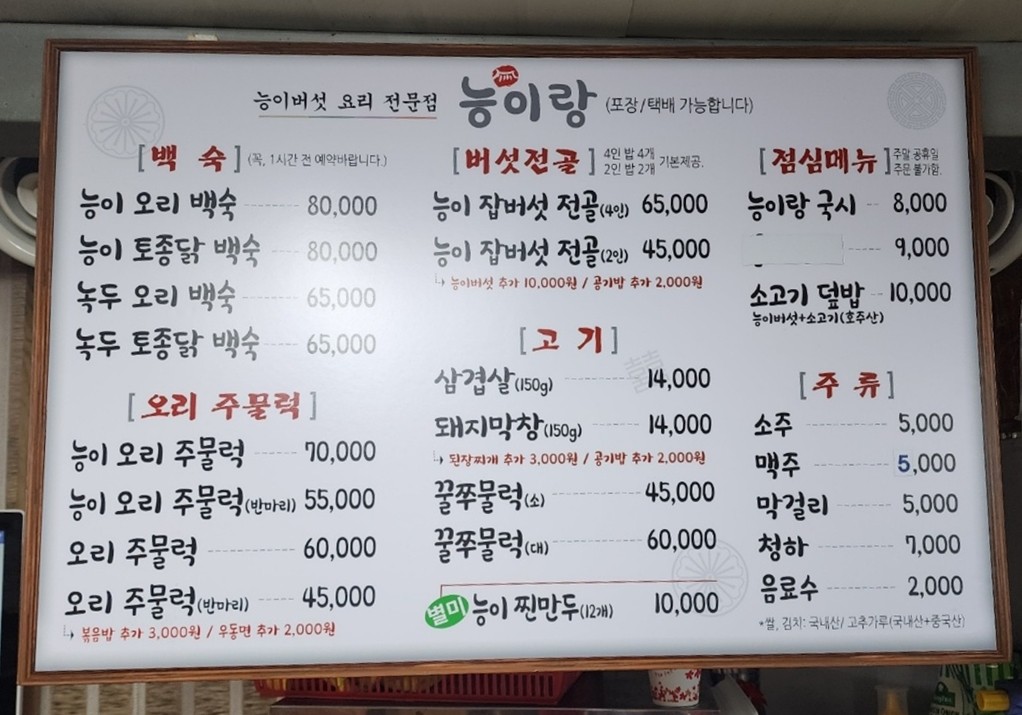 능이버섯 요리 전문점 능이랑 (포장/택배 가능합니다)
[백 숙] (꼭, 1시간 전 예약바랍니다.)
능이 오리 백숙 80,000
능이 토종닭 백숙 80,000
녹두 오리 백숙 65,000
녹두 토종닭 백숙 65,000
[오리 주물럭]
능이 오리 주물럭 70,000
능이 오리 주물럭(반마리) 55,000
오리 주물럭 60,000
오리 주물럭(반마리) 45,000
볶음밥 추가 3,000원 / 우동면 추가 2,000원
[버섯전골] 4인 밥 4개
2인 밥 2개 기본제공.
능이 잡버섯 전골(4인) 65,000
능이 잡버섯 전골(2인) 45,000
능이버섯 추가 10,000원 / 공기밥 추가 2,000원
[고 기]
삼겹살(150g) 14,000
돼지막창(150g) 14,000
된장찌개 추가 3,000원 / 공기밥 추가 2,000원
꿀쭈물럭(소) 45,000
꿀쭈물럭(대) 60,000
별미 능이 찐만두(12개) 10,000
[점심메뉴] 주말 공휴일
주문 불가함.
능이랑 국시 8,000
9,000
소고기 덮밥 10,000
능이버섯+소고기(호주산)
[주 류]
소주 5,000
맥주 5,000
막걸리 5,000
청하 7,000
음료수 2,000
*쌀, 김치: 국내산/ 고추가루(국내산+중국산)